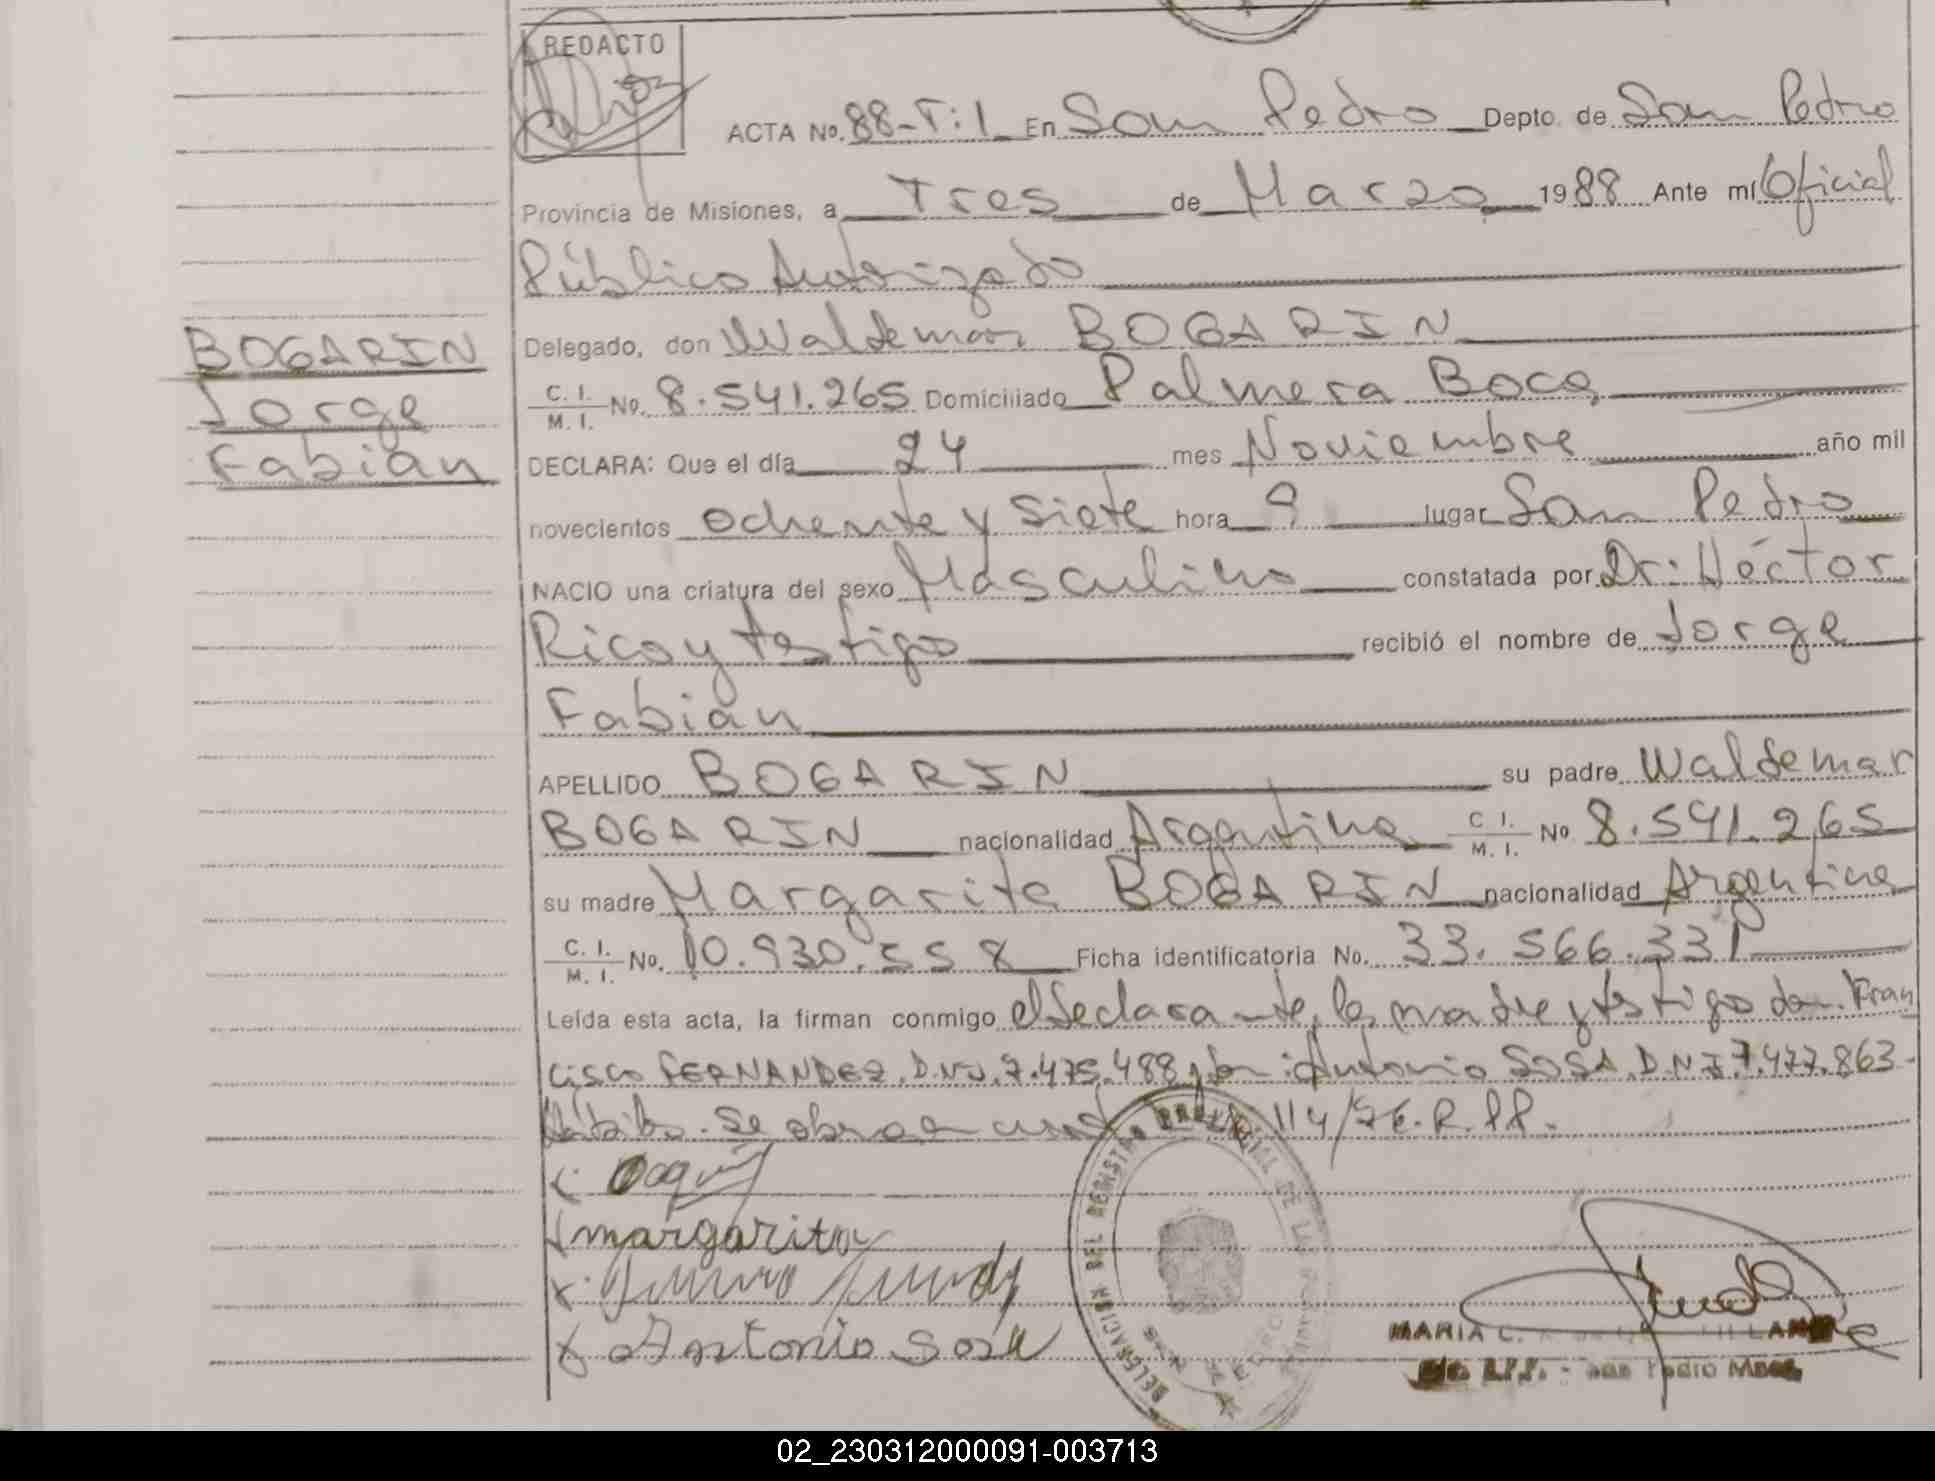 REDACTO
ACTA No. 88-T:1 En San Pedro Depto. de San Pedro
Provincia de Misiones, a Tres de Marzo 1988 Ante mí Oficial
Público Autorizado
BOGARIN
Jorge
Fabián
Delegado, don Waldemar BOGARIN
C. I.
M. I. No. 8.541.265 Domiciliado Palmera Boca
DECLARA: Que el día 24 mes Noviembre año mil
novecientos ochenta y siete hora 9 lugar San Pedro
NACIO una criatura del sexo Masculino constatada por Dr: Héctor
Rico y testigo recibió el nombre de Jorge
Fabián
APELLIDO BOGARIN su padre Waldemar
BOGARIN nacionalidad Argentina C. I. M. I. No 8.541.265
su madre Margarita BOGARIN nacionalidad Argentina
C. I.
M. I. No. 10.930.558 Ficha identificatoria No. 33.566.331
Leída esta acta, la firman conmigo el declarante, la madre y testigo don. Fran
cisco FERNANDEZ. D.N.I. 7.475.488 y don: Antonio SOSA. D.N.I. 7.477.863-
Hábiles. Se obra en 114/ R.PP.
margarita
Antonio Sosa
DELEGACION DEL REGISTRO PROVINCIAL DE LAS
SAN PEDRO
MARIA C.
San Pedro Mnes.
02_230312000091-003713